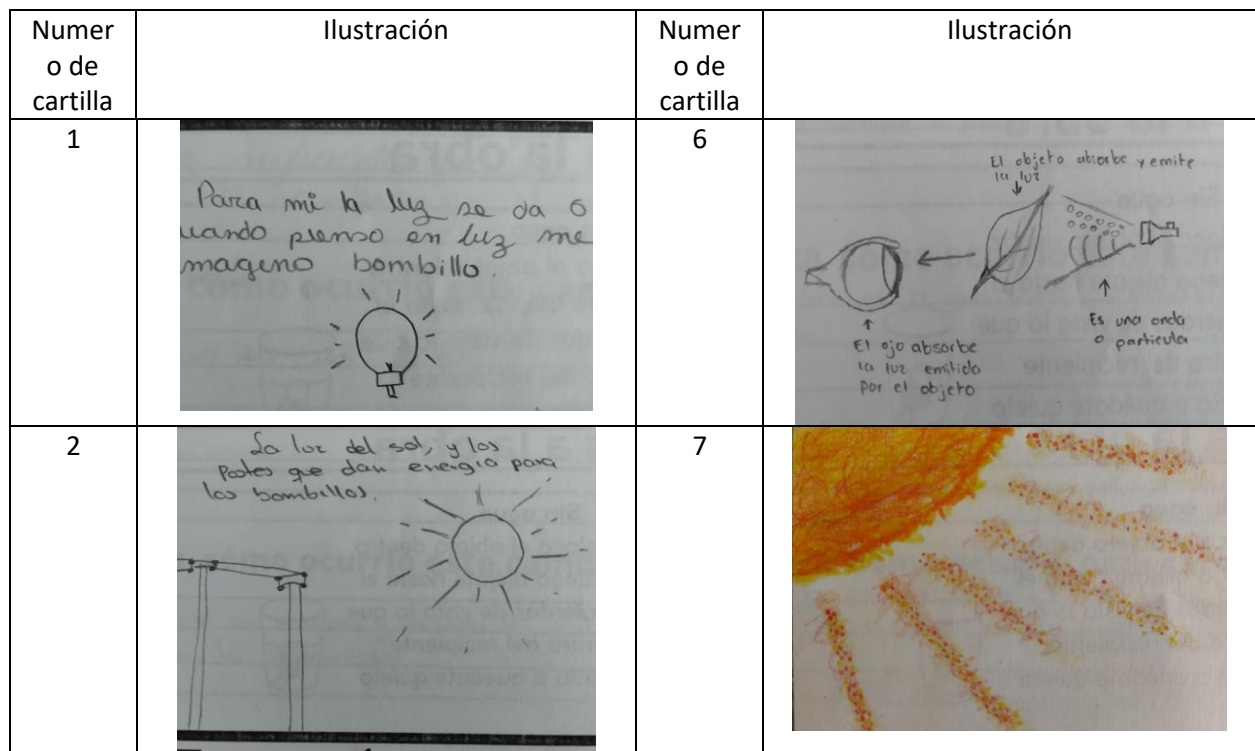 Numer
o de
cartilla
Ilustración
Numer
o de
cartilla
Ilustración
1
Para mi la luz se da o
uando pienso en luz me
magino bombillo.
6
El objeto absorbe y emite
la luz
Es una onda
o particula
El ojo absorbe
la luz emitida
por el objeto
2
La luz del sol, y los
Postes que dan energia para
los bombillos.
7